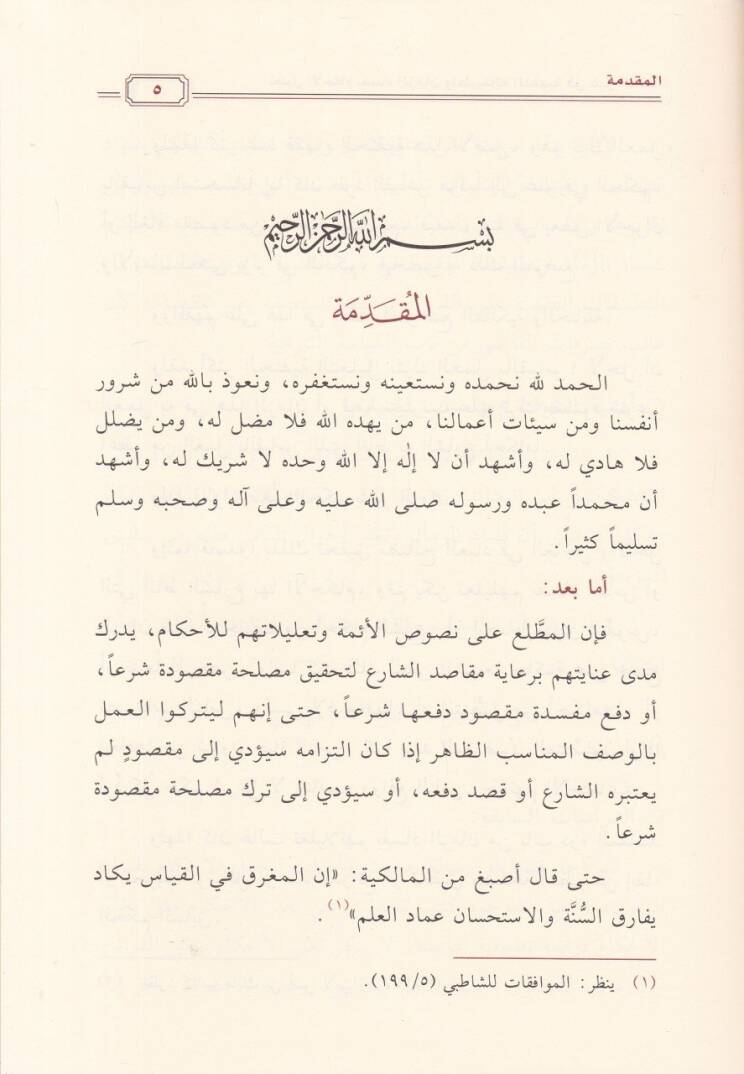 المقدمة
٥
بسم الله الرحمن الرحيم
المُقَدِّمَة
الحمد لله نحمده ونستعينه ونستغفره، ونعوذ بالله من شرور
أنفسنا ومن سيئات أعمالنا، من يهده الله فلا مضل له، ومن يضلل
فلا هادي له، وأشهد أن لا إلٰه إلا الله وحده لا شريك له، وأشهد
أن محمداً عبده ورسوله صلى الله عليه وعلى آله وصحبه وسلم
تسليماً كثيراً.
أما بعد:
فإن المطَّلع على نصوص الأئمة وتعليلاتهم للأحكام، يدرك
مدى عنايتهم برعاية مقاصد الشارع لتحقيق مصلحة مقصودة شرعاً،
أو دفع مفسدة مقصود دفعها شرعاً، حتى إنهم ليتركوا العمل
بالوصف المناسب الظاهر إذا كان التزامه سيؤدي إلى مقصودٍ لم
يعتبره الشارع أو قصد دفعه، أو سيؤدي إلى ترك مصلحة مقصودة
شرعاً.
حتى قال أصبغ من المالكية: «إن المغرق في القياس يكاد
يفارق السُّنَّة والاستحسان عماد العلم»(١).
(١) ينظر: الموافقات للشاطبي (١٩٩/٥).